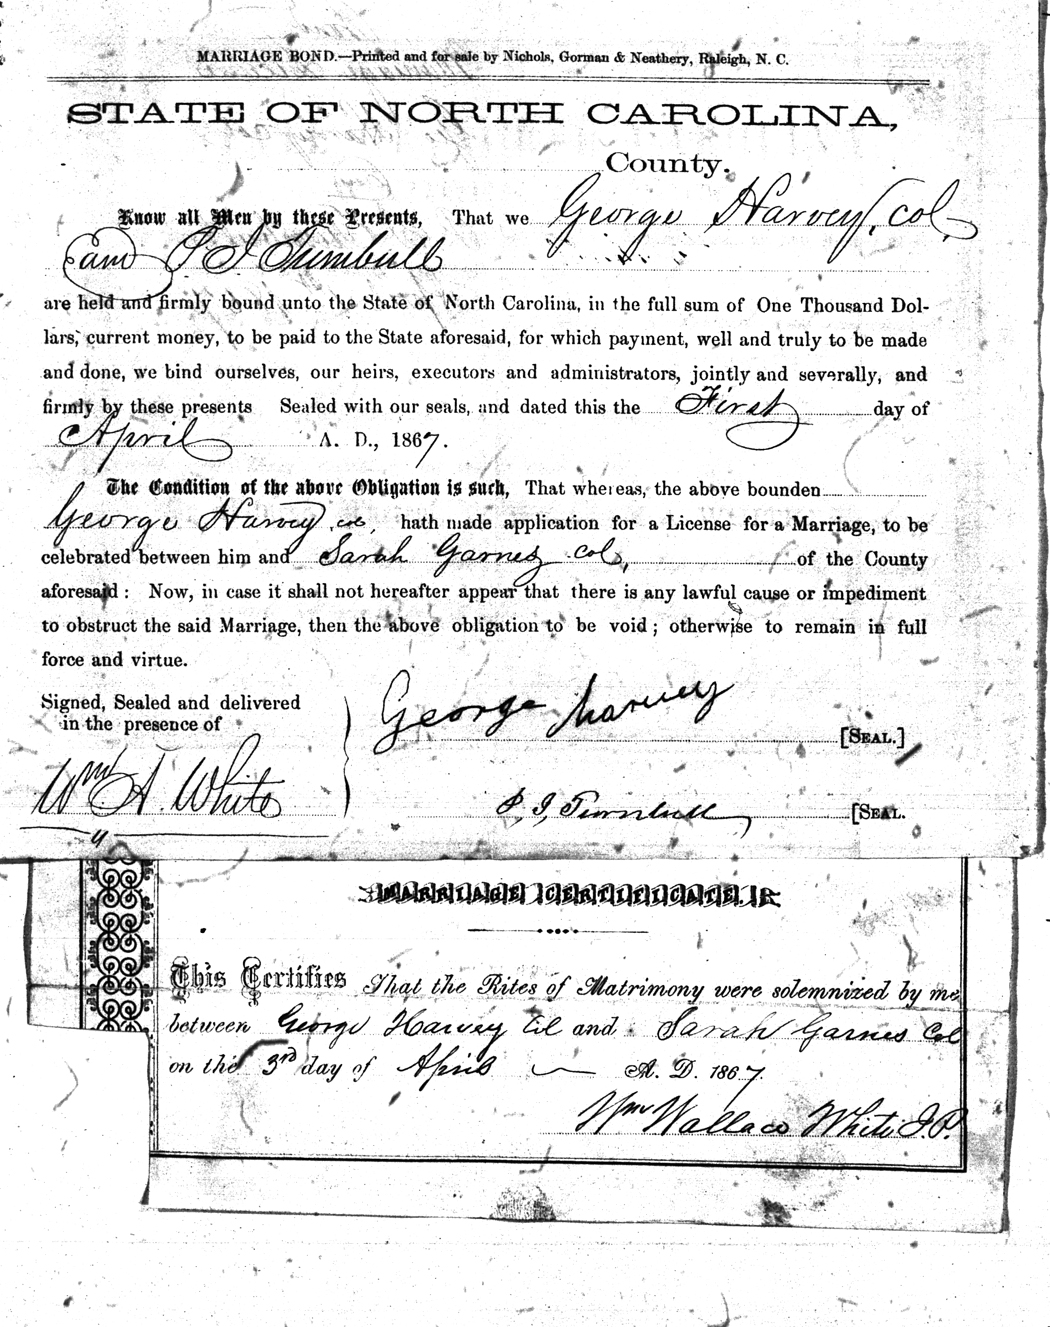 MARRIAGE BOND.—Printed and for sale by Nichols, Gorman & Neathery, Raleigh, N. C.
STATE OF NORTH CAROLINA,
County.
Know all Men by these Presents, That we George Harvey, col,
and P I Turnbull
are held and firmly bound unto the State of North Carolina, in the full sum of One Thousand Dol-
lars, current money, to be paid to the State aforesaid, for which payment, well and truly to be made
and done, we bind ourselves, our heirs, executors and administrators, jointly and severally, and
firmly by these presents Sealed with our seals, and dated this the First day of
April A. D., 1867.
The Condition of the above Obligation is such, That whereas, the above bounden
George Harvey, col, hath made application for a License for a Marriage, to be
celebrated between him and Sarah Garnes col, of the County
aforesaid : Now, in case it shall not hereafter appear that there is any lawful cause or impediment
to obstruct the said Marriage, then the above obligation to be void ; otherwise to remain in full
force and virtue.
Signed, Sealed and delivered
in the presence of
George Harvey [SEAL.]
Wm A. White
P, I, Turnbull [SEAL.
MARRIAGE CERTIFICATE.
This Certifies That the Rites of Matrimony were solemnized by me
between George Harvey Col and Sarah Garnes Col
on the 3rd day of April A. D. 1867.
Wm Wallace White J. P.